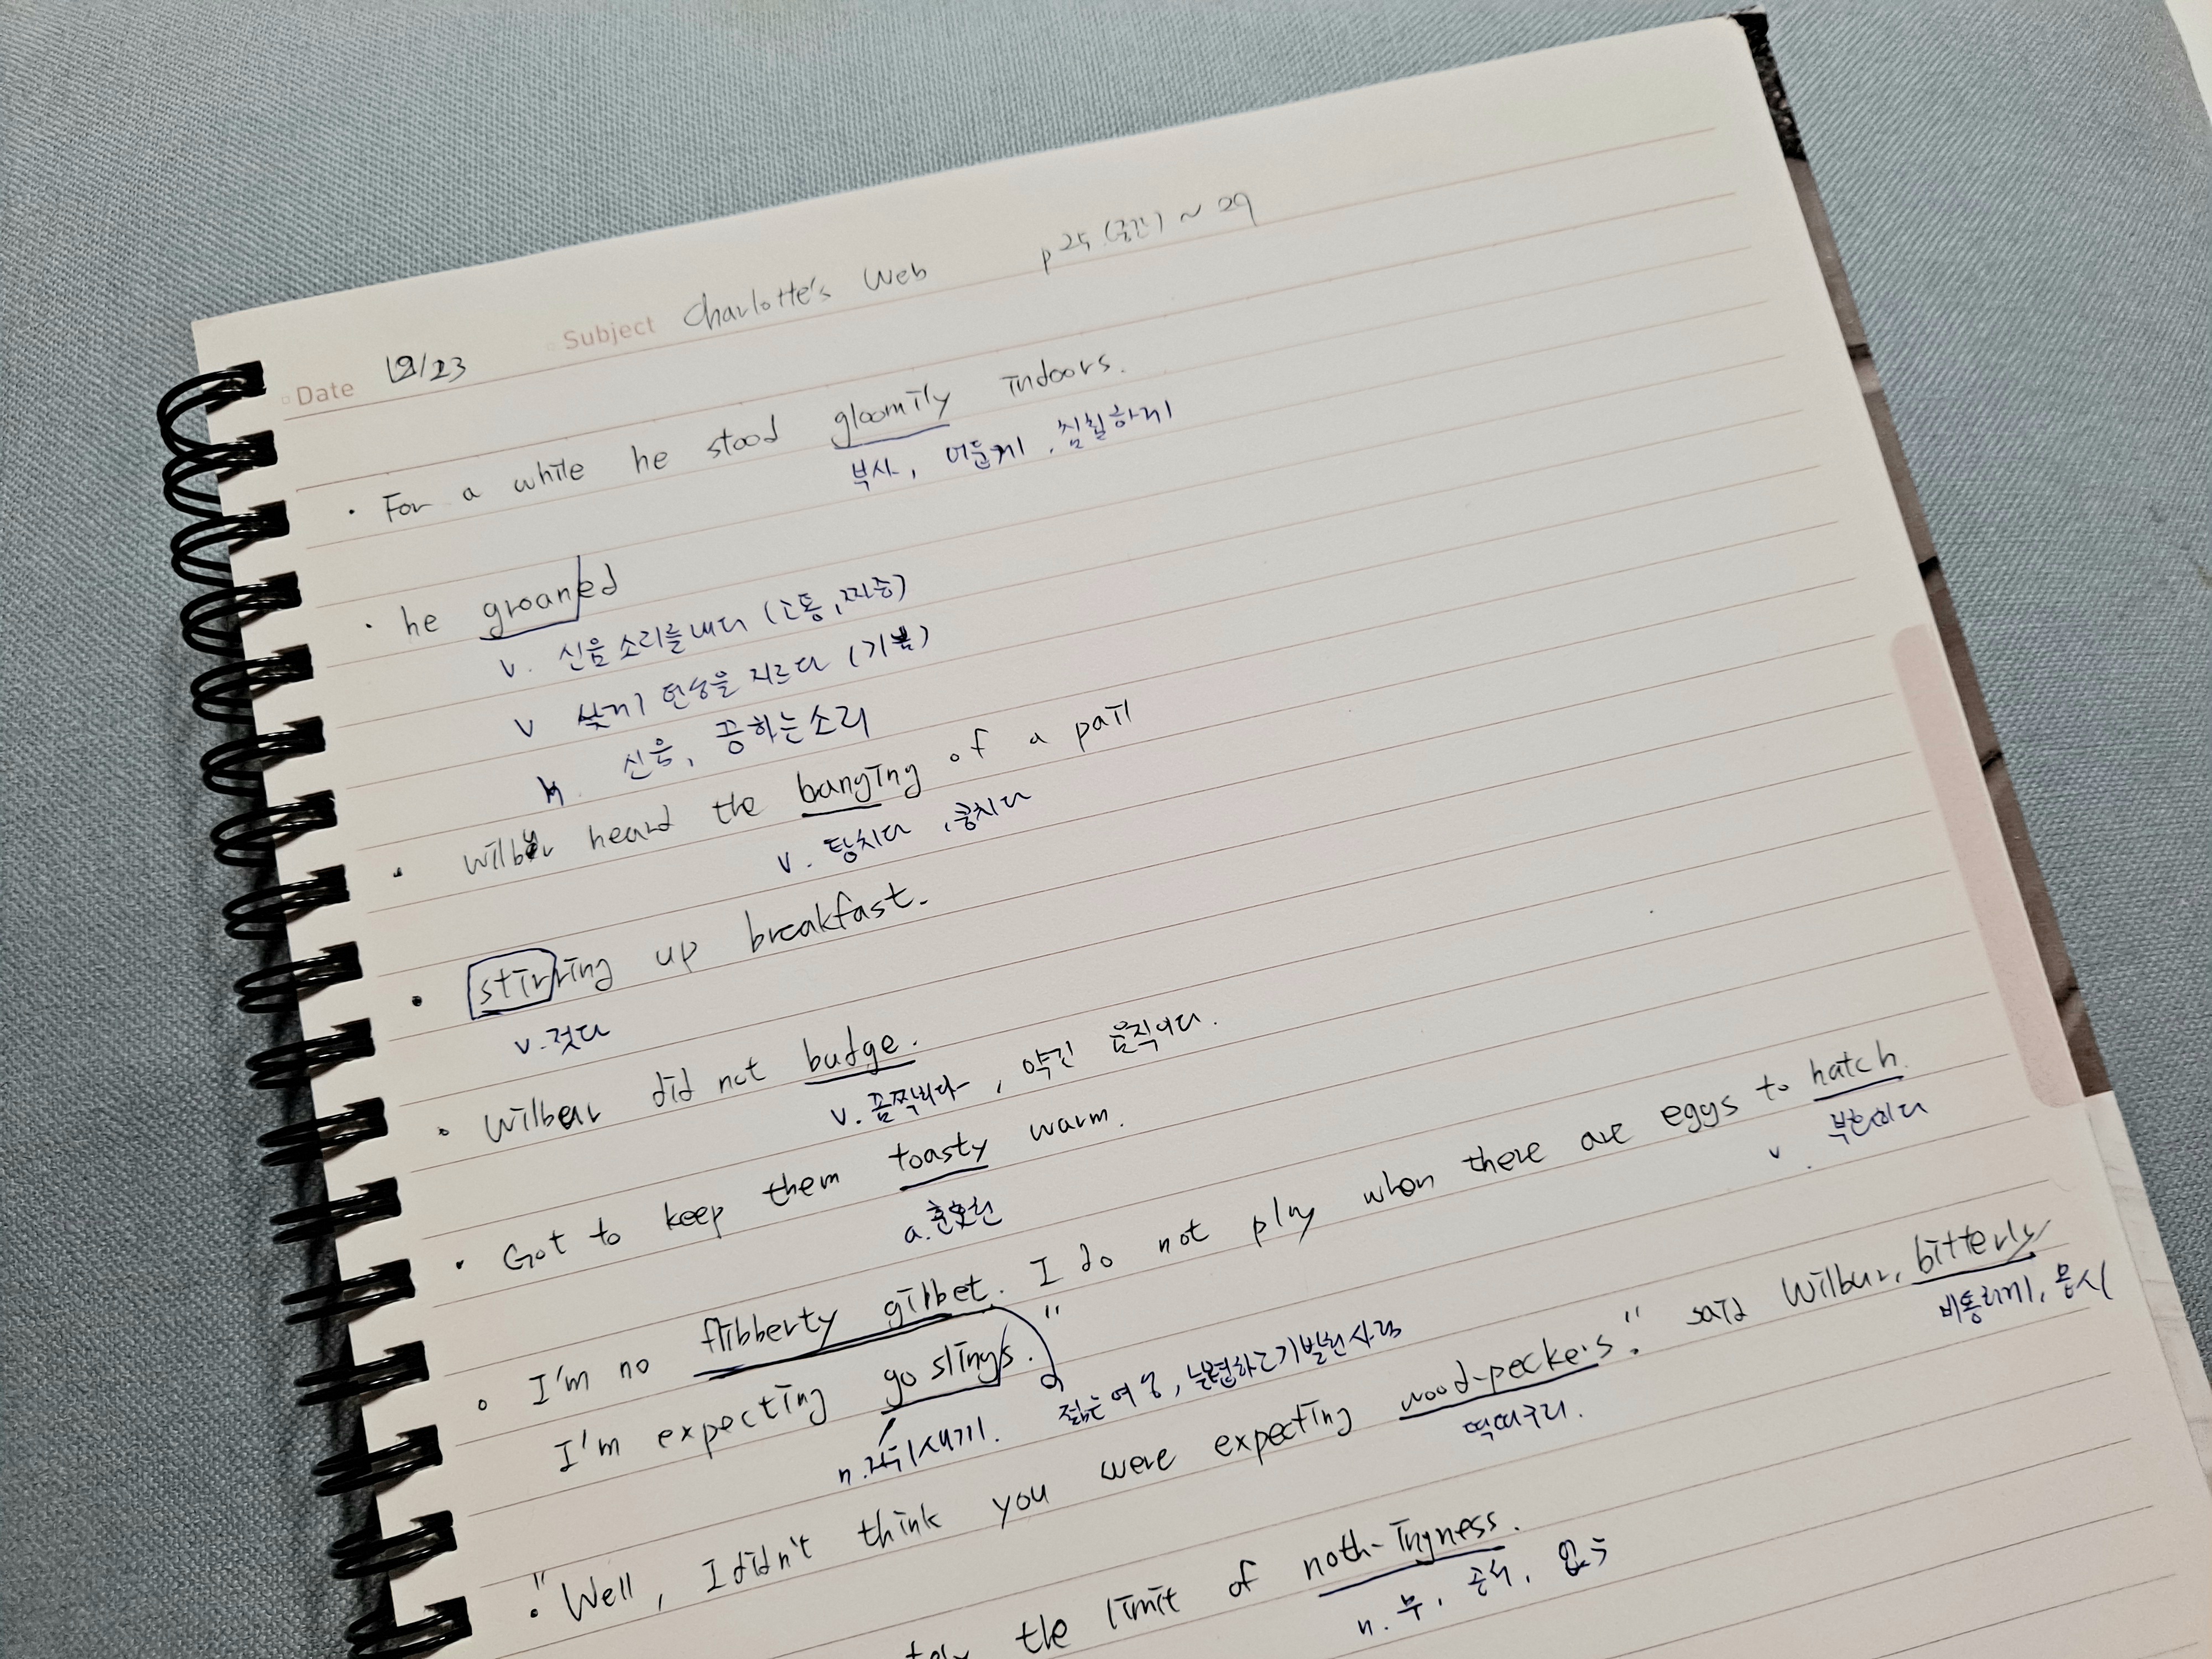 Date 12/23 Subject Charlotte's Web p25 (중간) ~ 29
· For a while he stood gloomily indoors.
부사, 어둡게, 침침하게
· he groaned
v. 신음 소리를 내다 (고통, 짜증)
v 낮게 탄성을 지르다 (기쁨)
n. 신음, 끙하는 소리
· Wilbur heard the banging of a pail
v. 탕치다, 쿵치다
· stirring up breakfast.
v. 젓다
· Wilbur did not budge.
v. 꼼짝하다, 약간 움직이다.
· Got to keep them toasty warm.
a. 훈훈한
· I'm no flibberty gilbet. I do not play when there are eggs to hatch.
v. 부화하다
I'm expecting goslings."
n. 거위새끼. 젊은 여성, 눌렵하고 기발한 사람
· "Well, I didn't think you were expecting wood-peckers." said Wilbur, bitterly
딱따구리. 비통하게, 몹시
the limit of noth-ingness.
n. 무, 공허, 없음